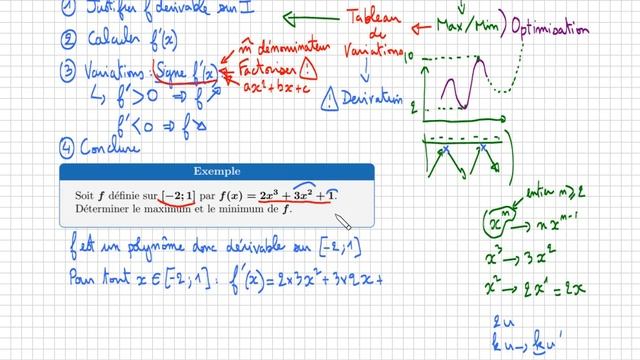 ① Justifier f dérivable sur I
② Calculer f'(x)
③ Variations : Signe f'(x)
↳ f' > 0 ⇒ f ↗
f' < 0 ⇒ f ↘
④ Conclure
m̂ dénominateur
Factoriser
ax² + bx + c
Tableau
de
Variations
⚠ Derivation
Max/Min
Optimisation
10
2
Exemple
Soit f définie sur [−2; 1] par f(x) = 2x³ + 3x² + 1.
Déterminer le maximum et le minimum de f.
f est un polynôme donc dérivable sur [-2;1]
Pour tout x ∈ [-2;1] : f'(x) = 2×3x² + 3×2x +
entier n ≥ 2
xⁿ → n xⁿ⁻¹
x³ → 3x²
x² → 2x¹ = 2x
2u
ku → ku'